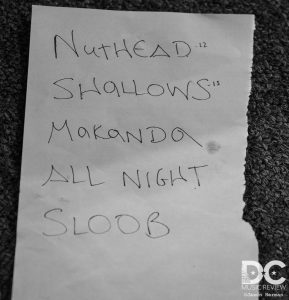 NUTHEAD .12
SHALLOWS .13
MAKANDA
ALL NIGHT
SLOOB
DC
MUSIC REVIEW